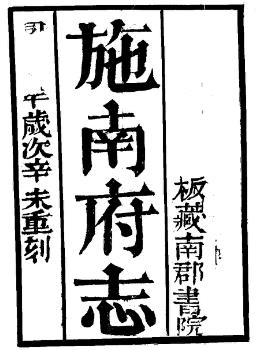 板藏南郡書院
施南府志
年歲次辛未重刻